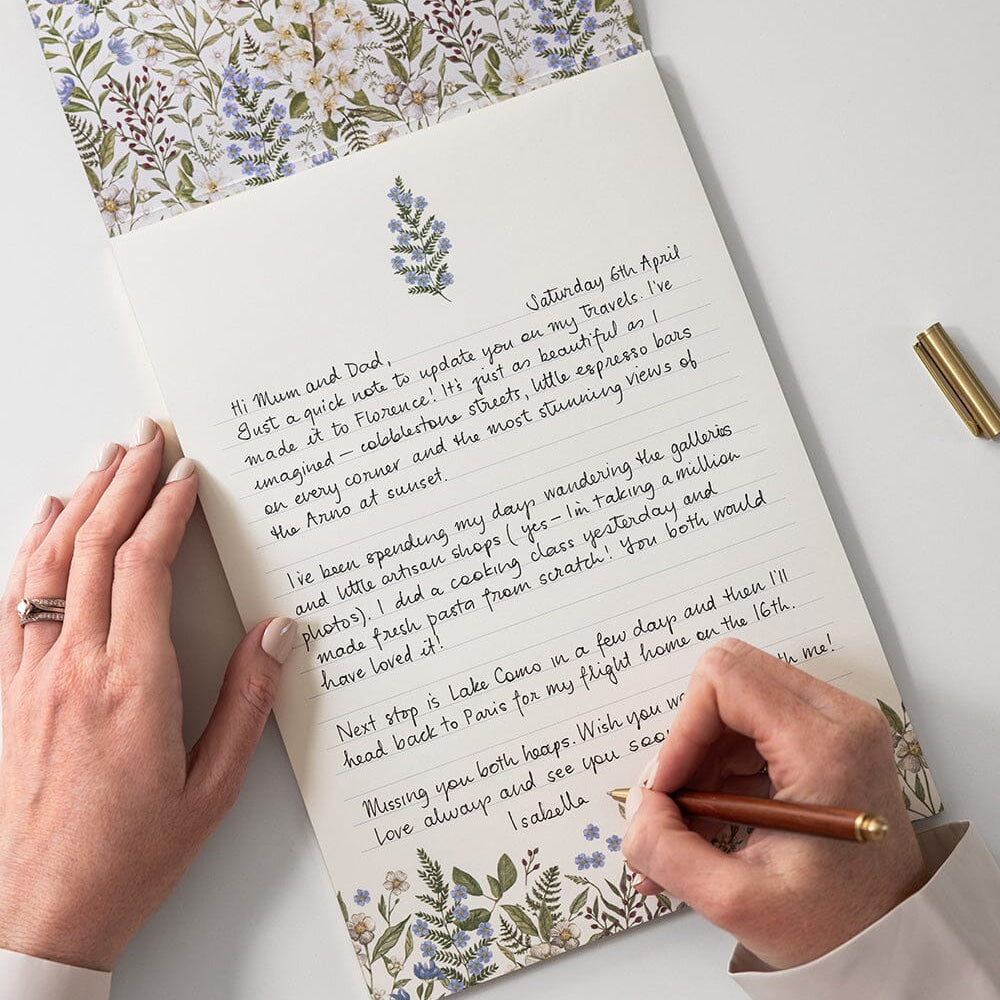 Saturday 6th April
Hi Mum and Dad,
Just a quick note to update you on my travels. I've
made it to Florence! It's just as beautiful as I
imagined – cobblestone streets, little espresso bars
on every corner and the most stunning views of
the Arno at sunset.
I've been spending my days wandering the galleries
and little artisan shops (yes – I'm taking a million
photos). I did a cooking class yesterday and
made fresh pasta from scratch! You both would
have loved it!
Next stop is Lake Como in a few days and then I'll
head back to Paris for my flight home on the 16th.
Missing you both heaps. Wish you me!
Love always and see you
Isabella